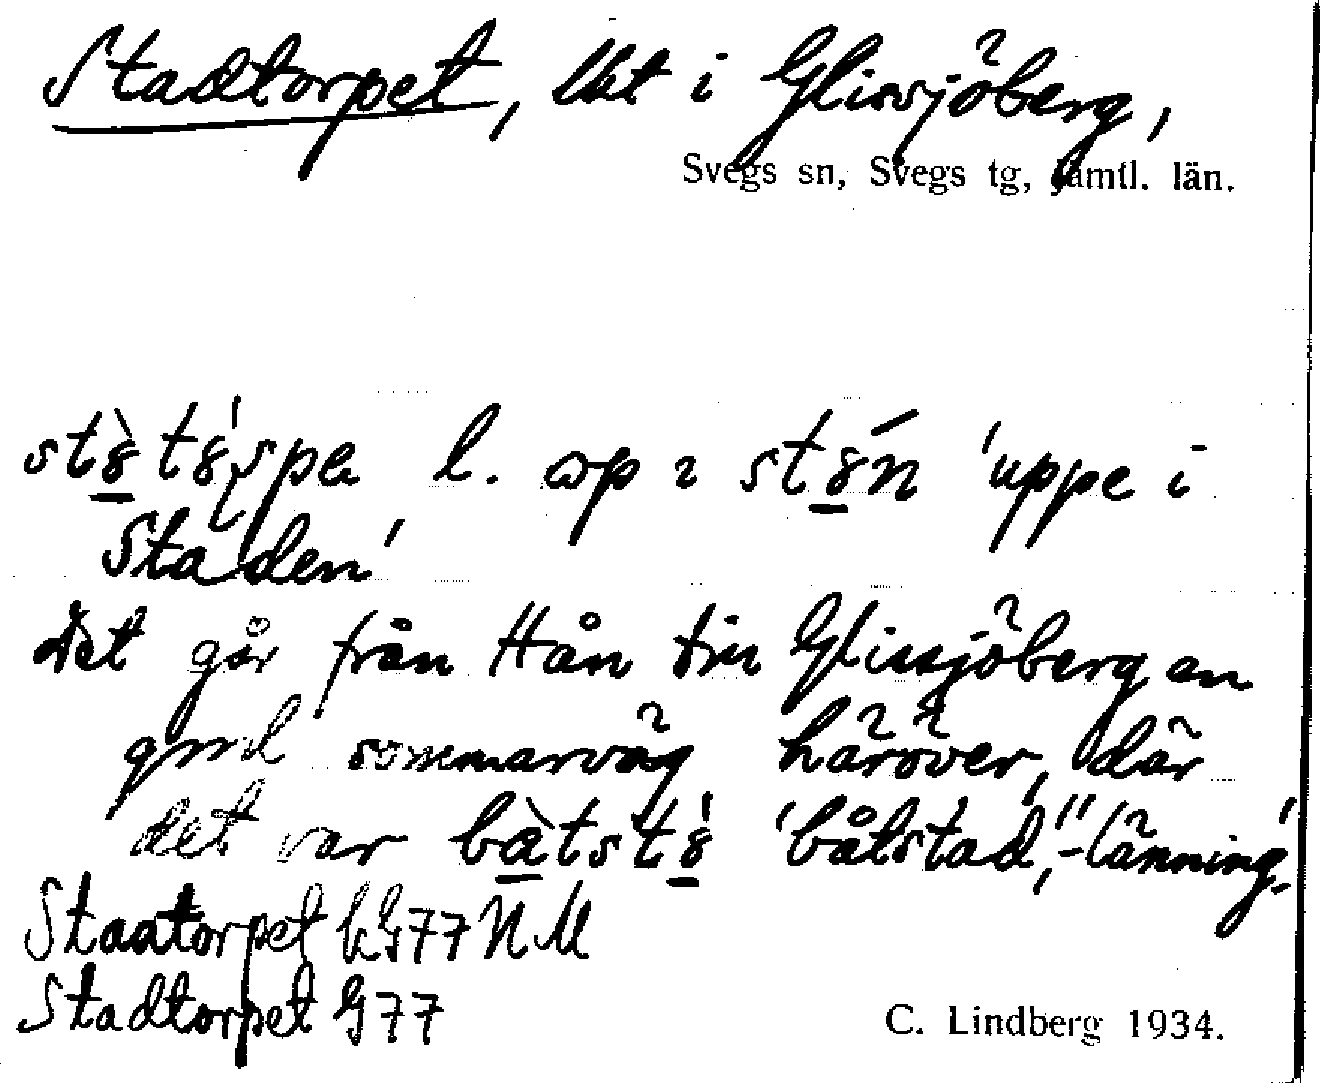 Stadtorpet, lht i Glissjöberg,
Svegs sn, Svegs tg, Jämtl. län.
l. 'uppe i
Staden'
Det går från Hån till Glissjöberg en
gml sommarväg häröver, där
det var 'båtstad', '-länning'.
Staatorpet kG77NM
Stadtorpet G77
C. Lindberg 1934.